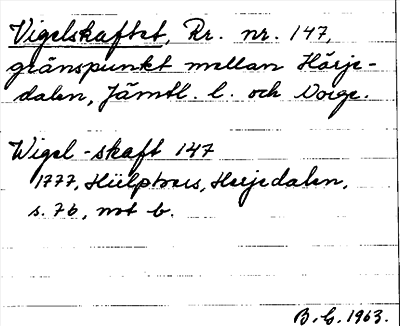 Vigelskaftet, Rr. nr. 147,
gränspunkt mellan Härje-
dalen, Jämtl. l. och Norge.
Wigel-skaft 147
1777, Hülphers, Herjedalen,
s. 76, not b.
B. G. 1963.